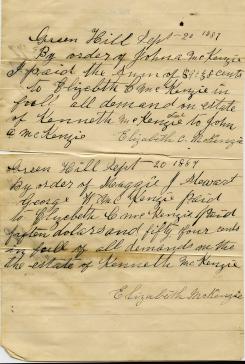 Green Hill Sept 20 1887
By order of John A McKenzie
I paid the Sum of cents
to Elizabeth C McKenzie in
full all demand on estate
of Kenneth McKenzie to John
A McKenzie
Elizabeth C. McKenzie
Green Hill Sept 20 1887
By order of Maggie J Stewart
George W McKenzie Paid
to Elizebeth C McKenzie I Paid
dolars and fifty four cents
in full of all demands on the
the estate of Kenneth McKenzie
Elizabeth McKenzie